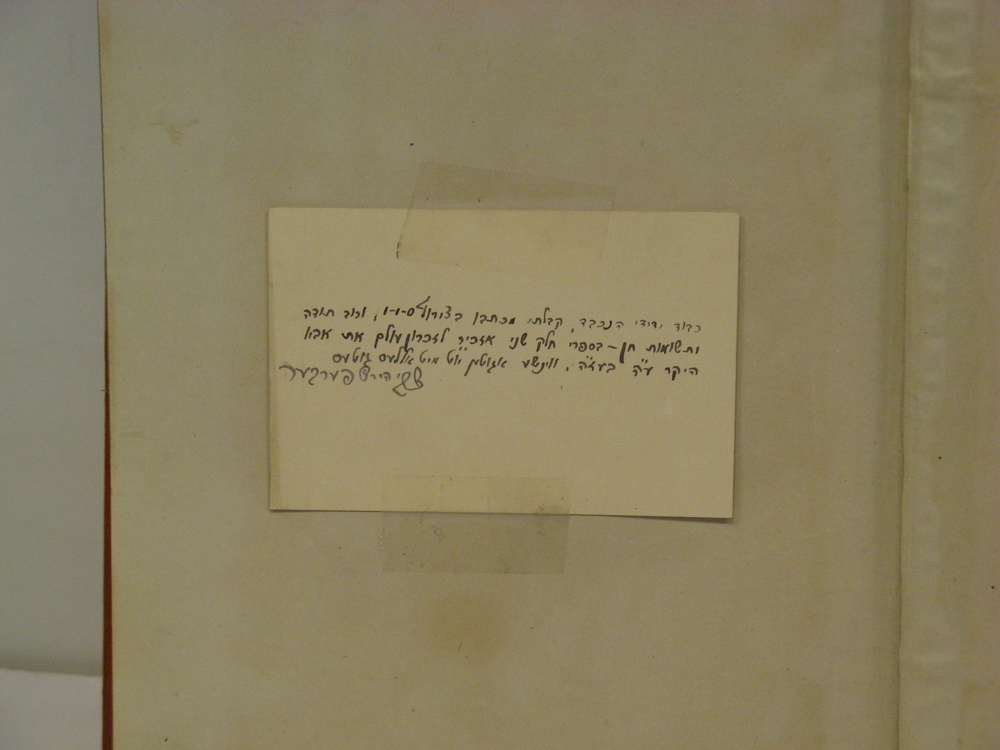 כבוד ידידי הנכבד, קבלתי מכתבו בצירוף 1-1-0$, ורוב תודה
ותשואות חן – בספרי חלק שני אזכיר לזכרון עולם את אביו
היקר ע"ה בעז"ה. ווינשע אגוטען יוט מיט אללעס גוטעס
צבי הירש פערבער